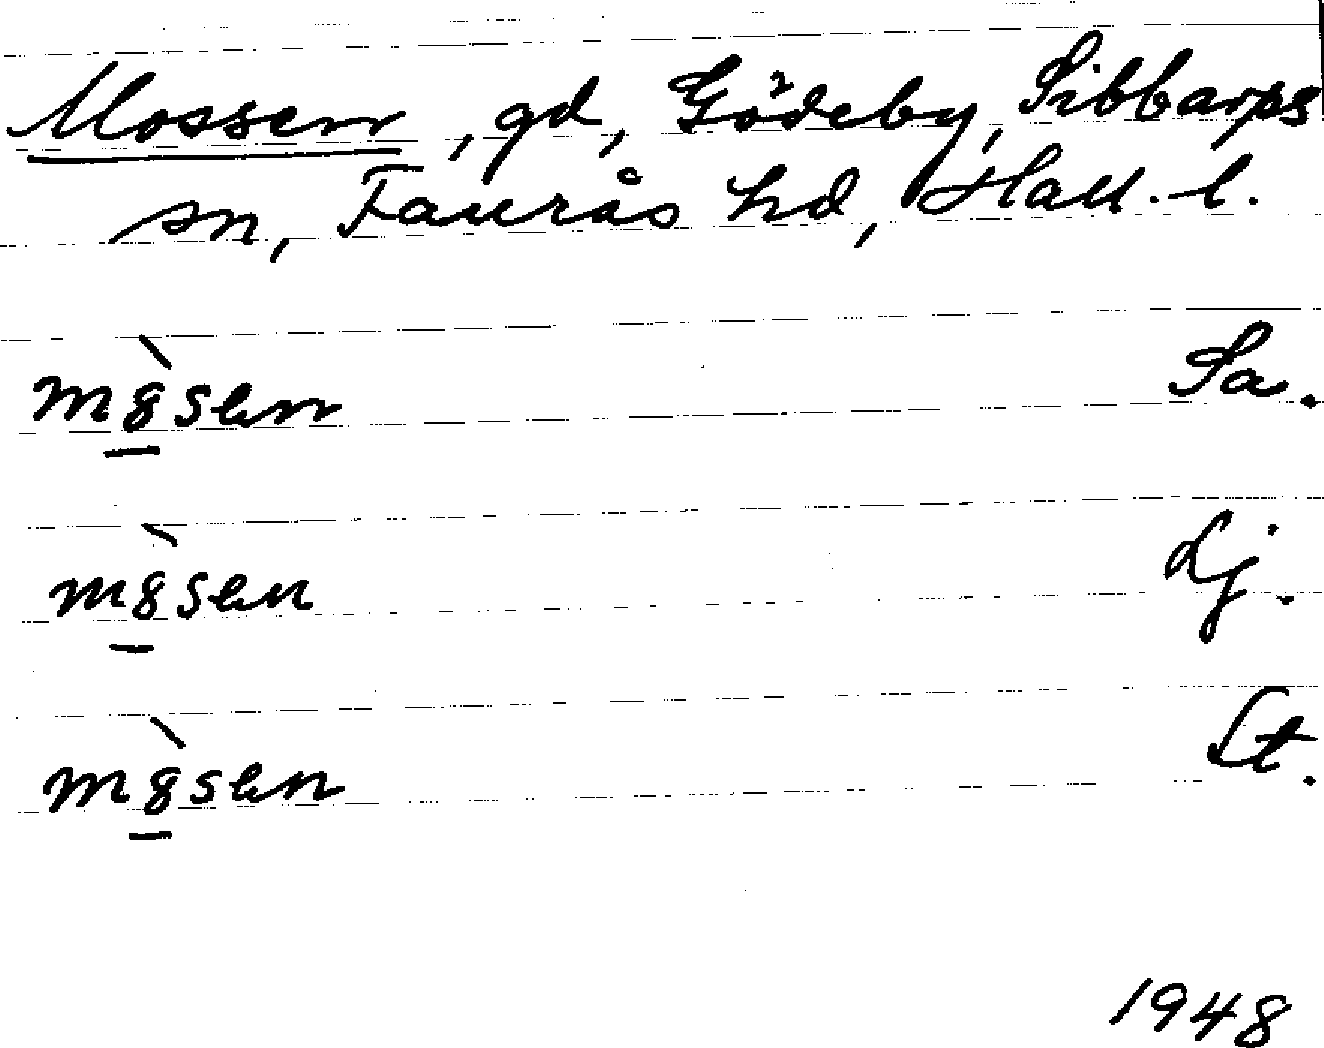 Mossen, gd, Gödeby, Sibbarps
sn, Faurås hd, Hall. l.
m8̱̀sen Sa.
m8̱̀sen Lj.
m8̱̀sen St.
1948